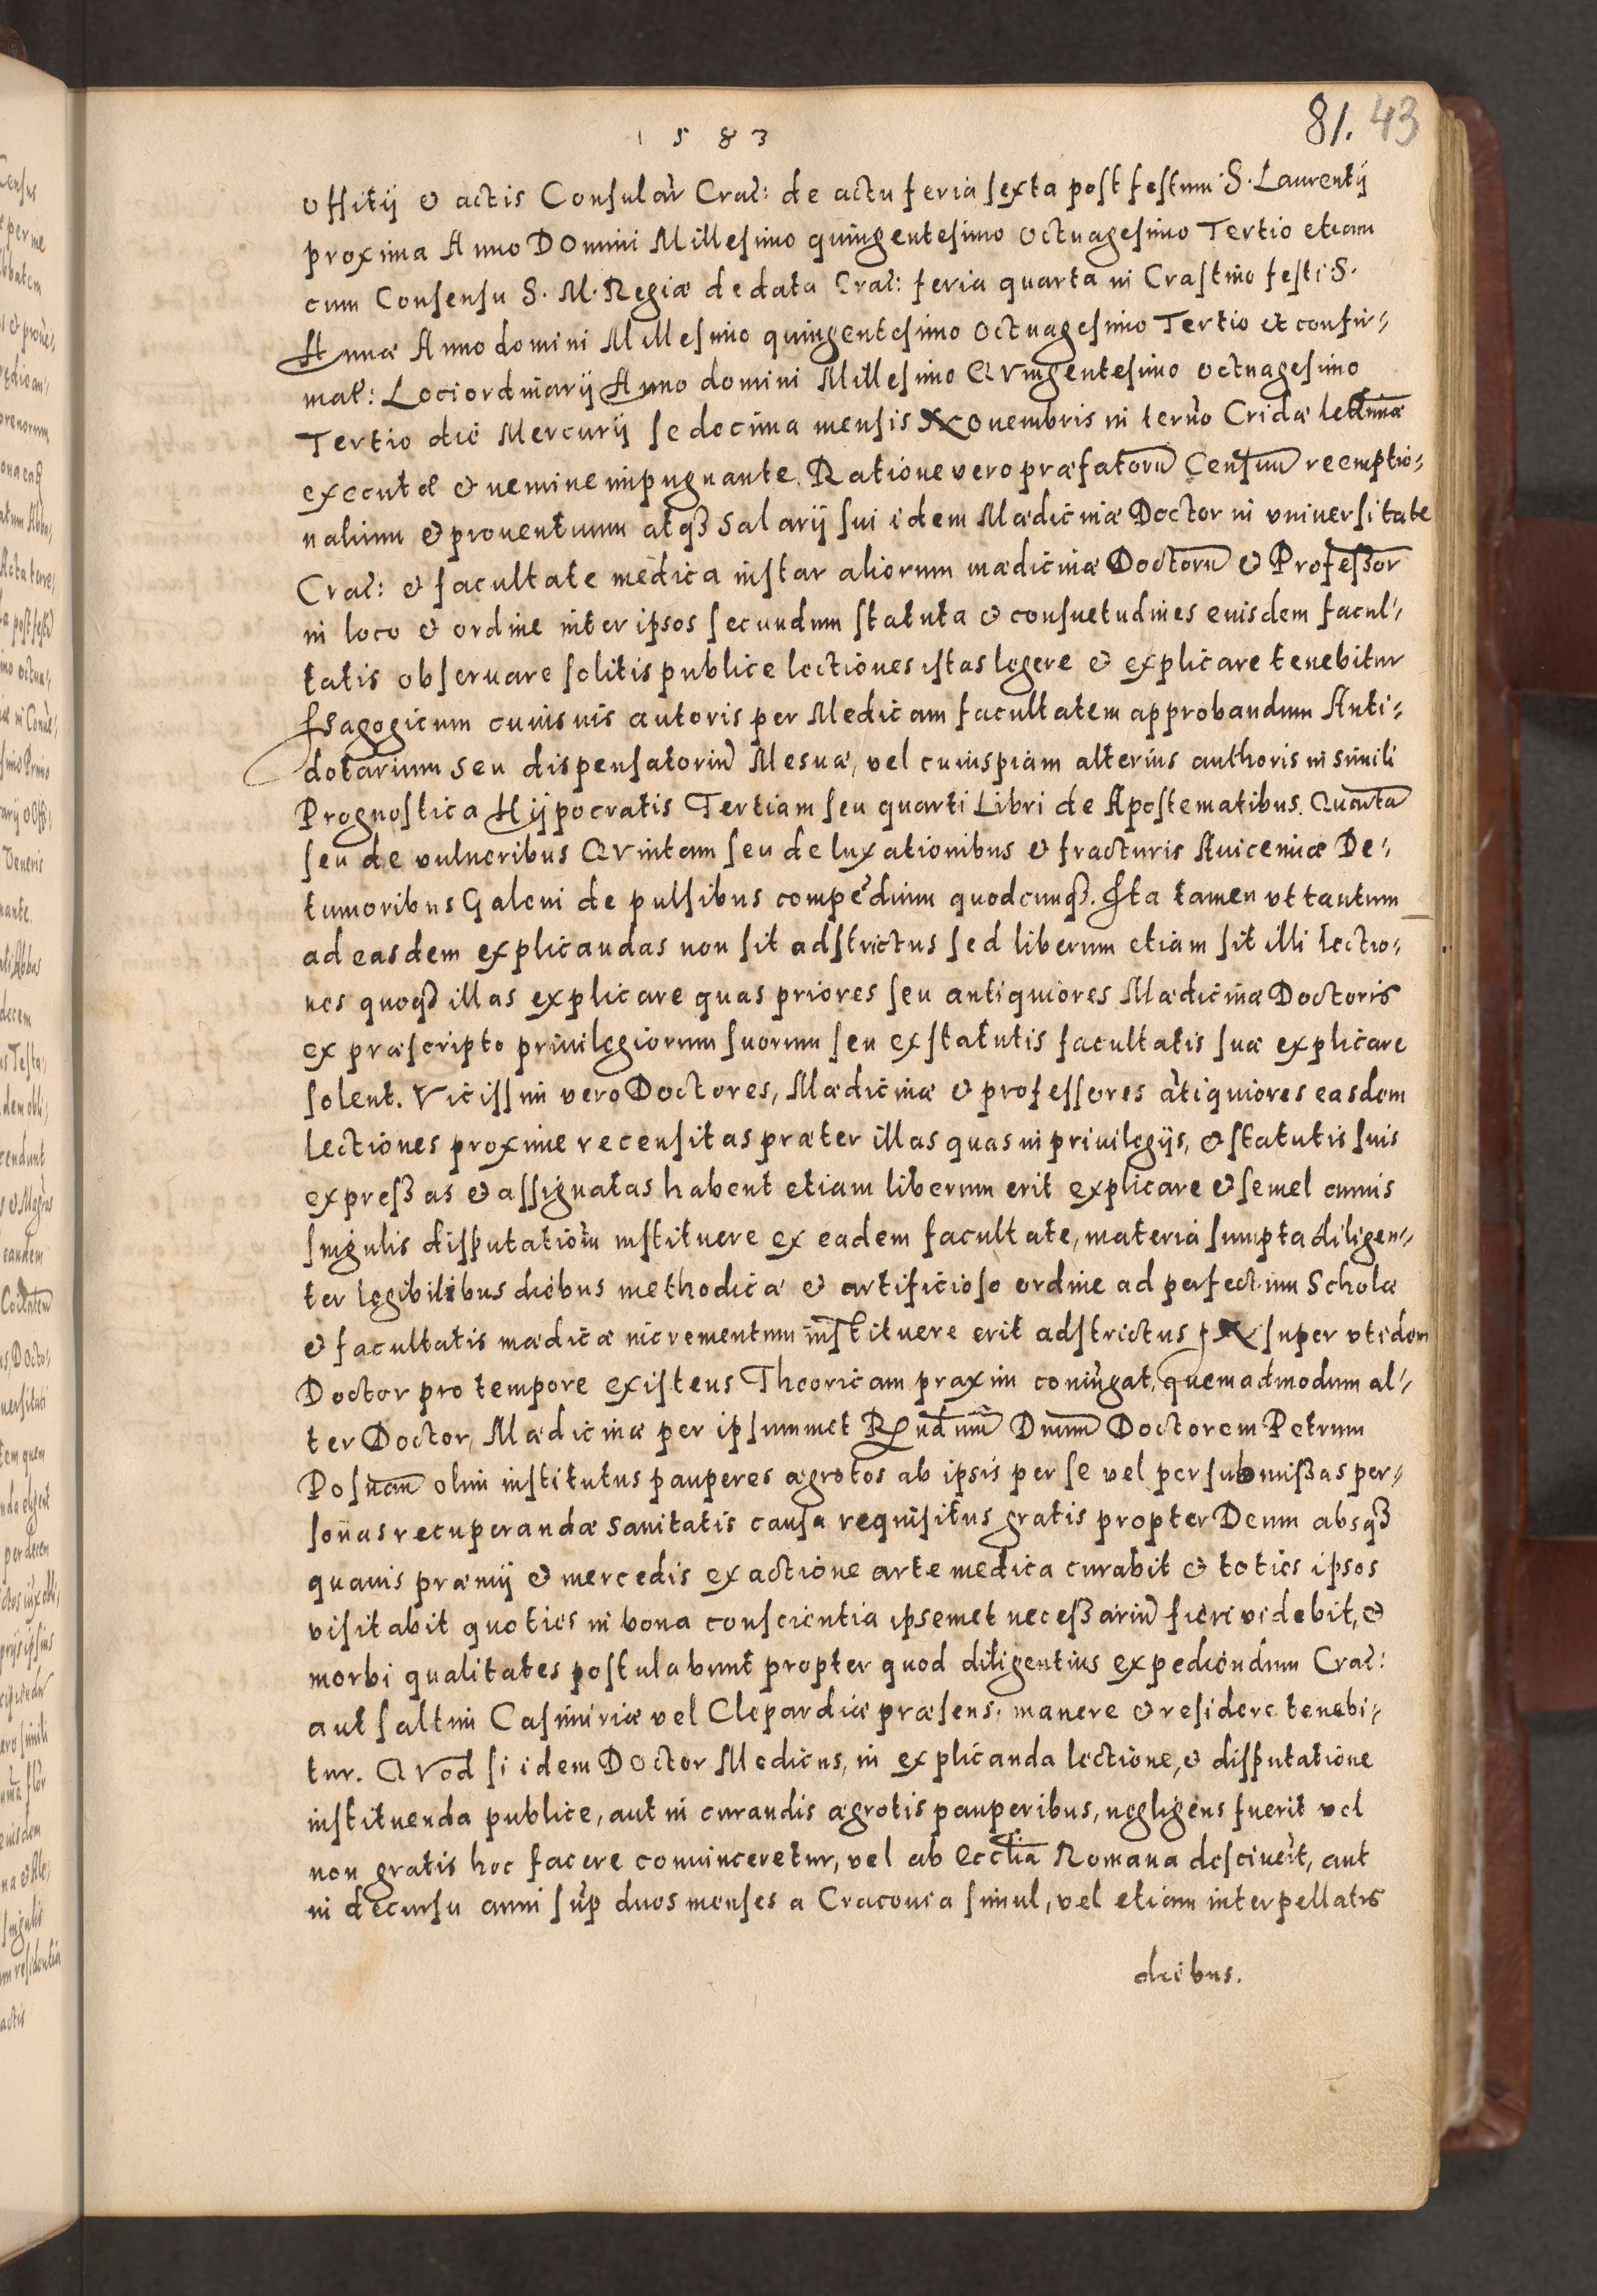 81. 43
1 5 8 3
offitij & actis Consular Crac: de actu feria sexta post festum S. Laurentij
proxima Anno DOmini Millesimo quingentesimo octuagesimo Tertio etiam
cum Consensu S. M. Regiæ de data Crac: feria quarta in Crastino festi S.
Annæ Anno domini Millesimo quingentesimo octuagesimo Tertio et confir⸗
mat: Loci ordinarij Anno domini Millesimo QVingentesimo octuagesimo
Tertio die Mercurij sedecima mensis Nouembris in termo Cridæ lectimæ
executæ & nemine impugnante. Ratione vero præfatorū Censuū reemptio⸗
nalium & prouentuum atqȝ salarij sui idem Mædicinæ Doctor in vniuersitate
Crac: & facultate medica instar aliorum mædicinæ Doctorū & Profeßor
in loco & ordine inter ipsos secundum statuta & consuetudines eiusdem facul⸗
tatis obseruare solitis publice lectiones istas legere & explicare tenebitur
Isagogicum cuiusuis autoris per Medicam facultatem approbandum Anti⸗
dotarium seu dispensatoriū Mesuæ, vel cuiuspiam alterius authoris in simili
Prognostica Hijpocratis Tertiam seu quarti Libri de Apostematibus. Quarta
seu de vulneribus QVintam seu de luxationibus & fracturis Auicennæ De⸗
tumoribus Galeni de pulsibus compēdium quodcunqȝ. Ita tamen vt tantum
ad easdem explicandas non sit adstrictus sed liberum etiam sit illi lectio⸗
nes quoqȝ illas explicare quas priores seu antiquiores Mædicinæ Doctoris
ex præscripto priuilegiorum suorum seu ex statutis facultatis suæ explicare
solent. Vicissim vero Doctores, Mædicinæ & professores ātiquiores easdem
lectiones proxime recensitas præter illas quas in priuilegijs, & statutis suis
expreßas & assignatas habent etiam liberum erit explicare & semel annis
singulis disputationū instituere ex eadem facultate, materia sumpta diligen⸗
ter legibilibus diebus methodicæ & artificioso ordine ad perfectum Scholæ
& facultatis mædicæ incrementum instituere erit adstrictus In super vt idem
Doctor pro tempore existens Theoricam praxim coniungat, quemadmodum al⸗
ter Doctor, Mædicinæ per ipsummet Rndum Dnum Doctorem Petrum
Posnan olim institutus pauperes ægrotos ab ipsis per se vel per submißas per⸗
sonas recuperandæ sanitatis causa requisitus gratis propter Deum absqȝ
quauis præmij & mercedis exactione arte medica curabit & toties ipsos
visitabit quoties in bona conscientia ipsemet neceßariū fieri videbit, &
morbi qualitates postulabunt propter quod diligentius expediendum Crac:
aut saltim Casimiriæ vel Clepardiæ præsens, manere & residere tenebi⸗
tur. QVod si idem Doctor Medicus, in explicanda lectione, & disputatione
instituenda publice, aut in curandis ægrotis pauperibus, negligens fuerit vel
non gratis hoc facere conuinceretur, vel ab Ecctia Romana desciuerit, aut
in decursu anni sup duos menses a Cracouia simul, vel etiam interpellatis
diebus.